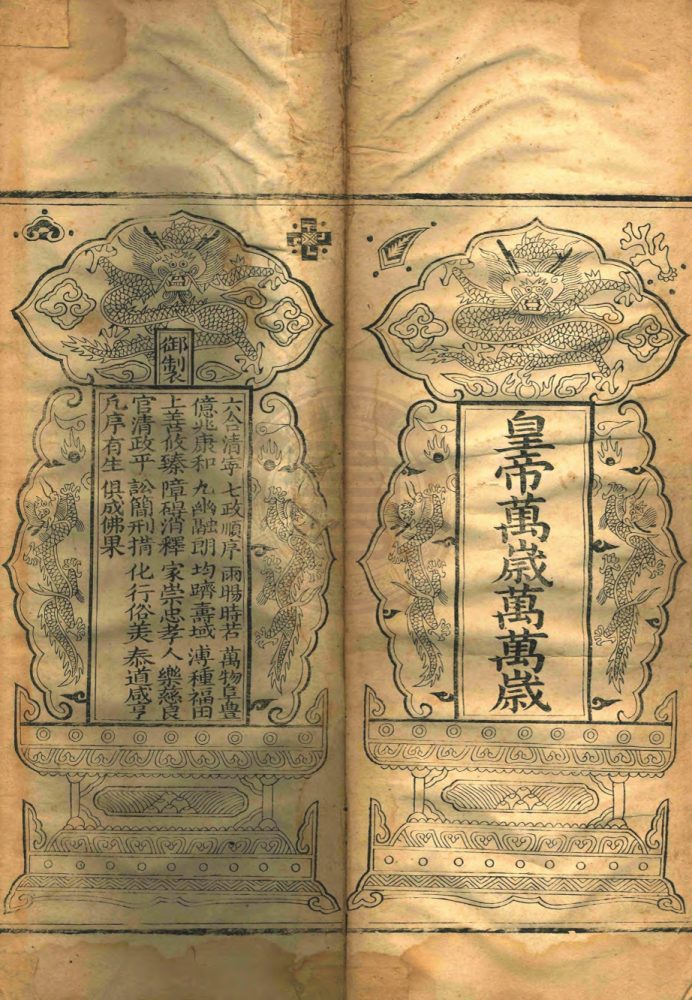 皇帝萬歲萬萬歲
御製
六合清寧 七政順序 雨暘時若 萬物阜豊
億兆康和 九幽融朗 均躋壽域 溥種福田
上善攸臻 障碍消釋 家崇忠孝 人樂慈良
官清政平 訟簡刑措 化行俗美 泰道咸亨
凢序有生 俱成佛果